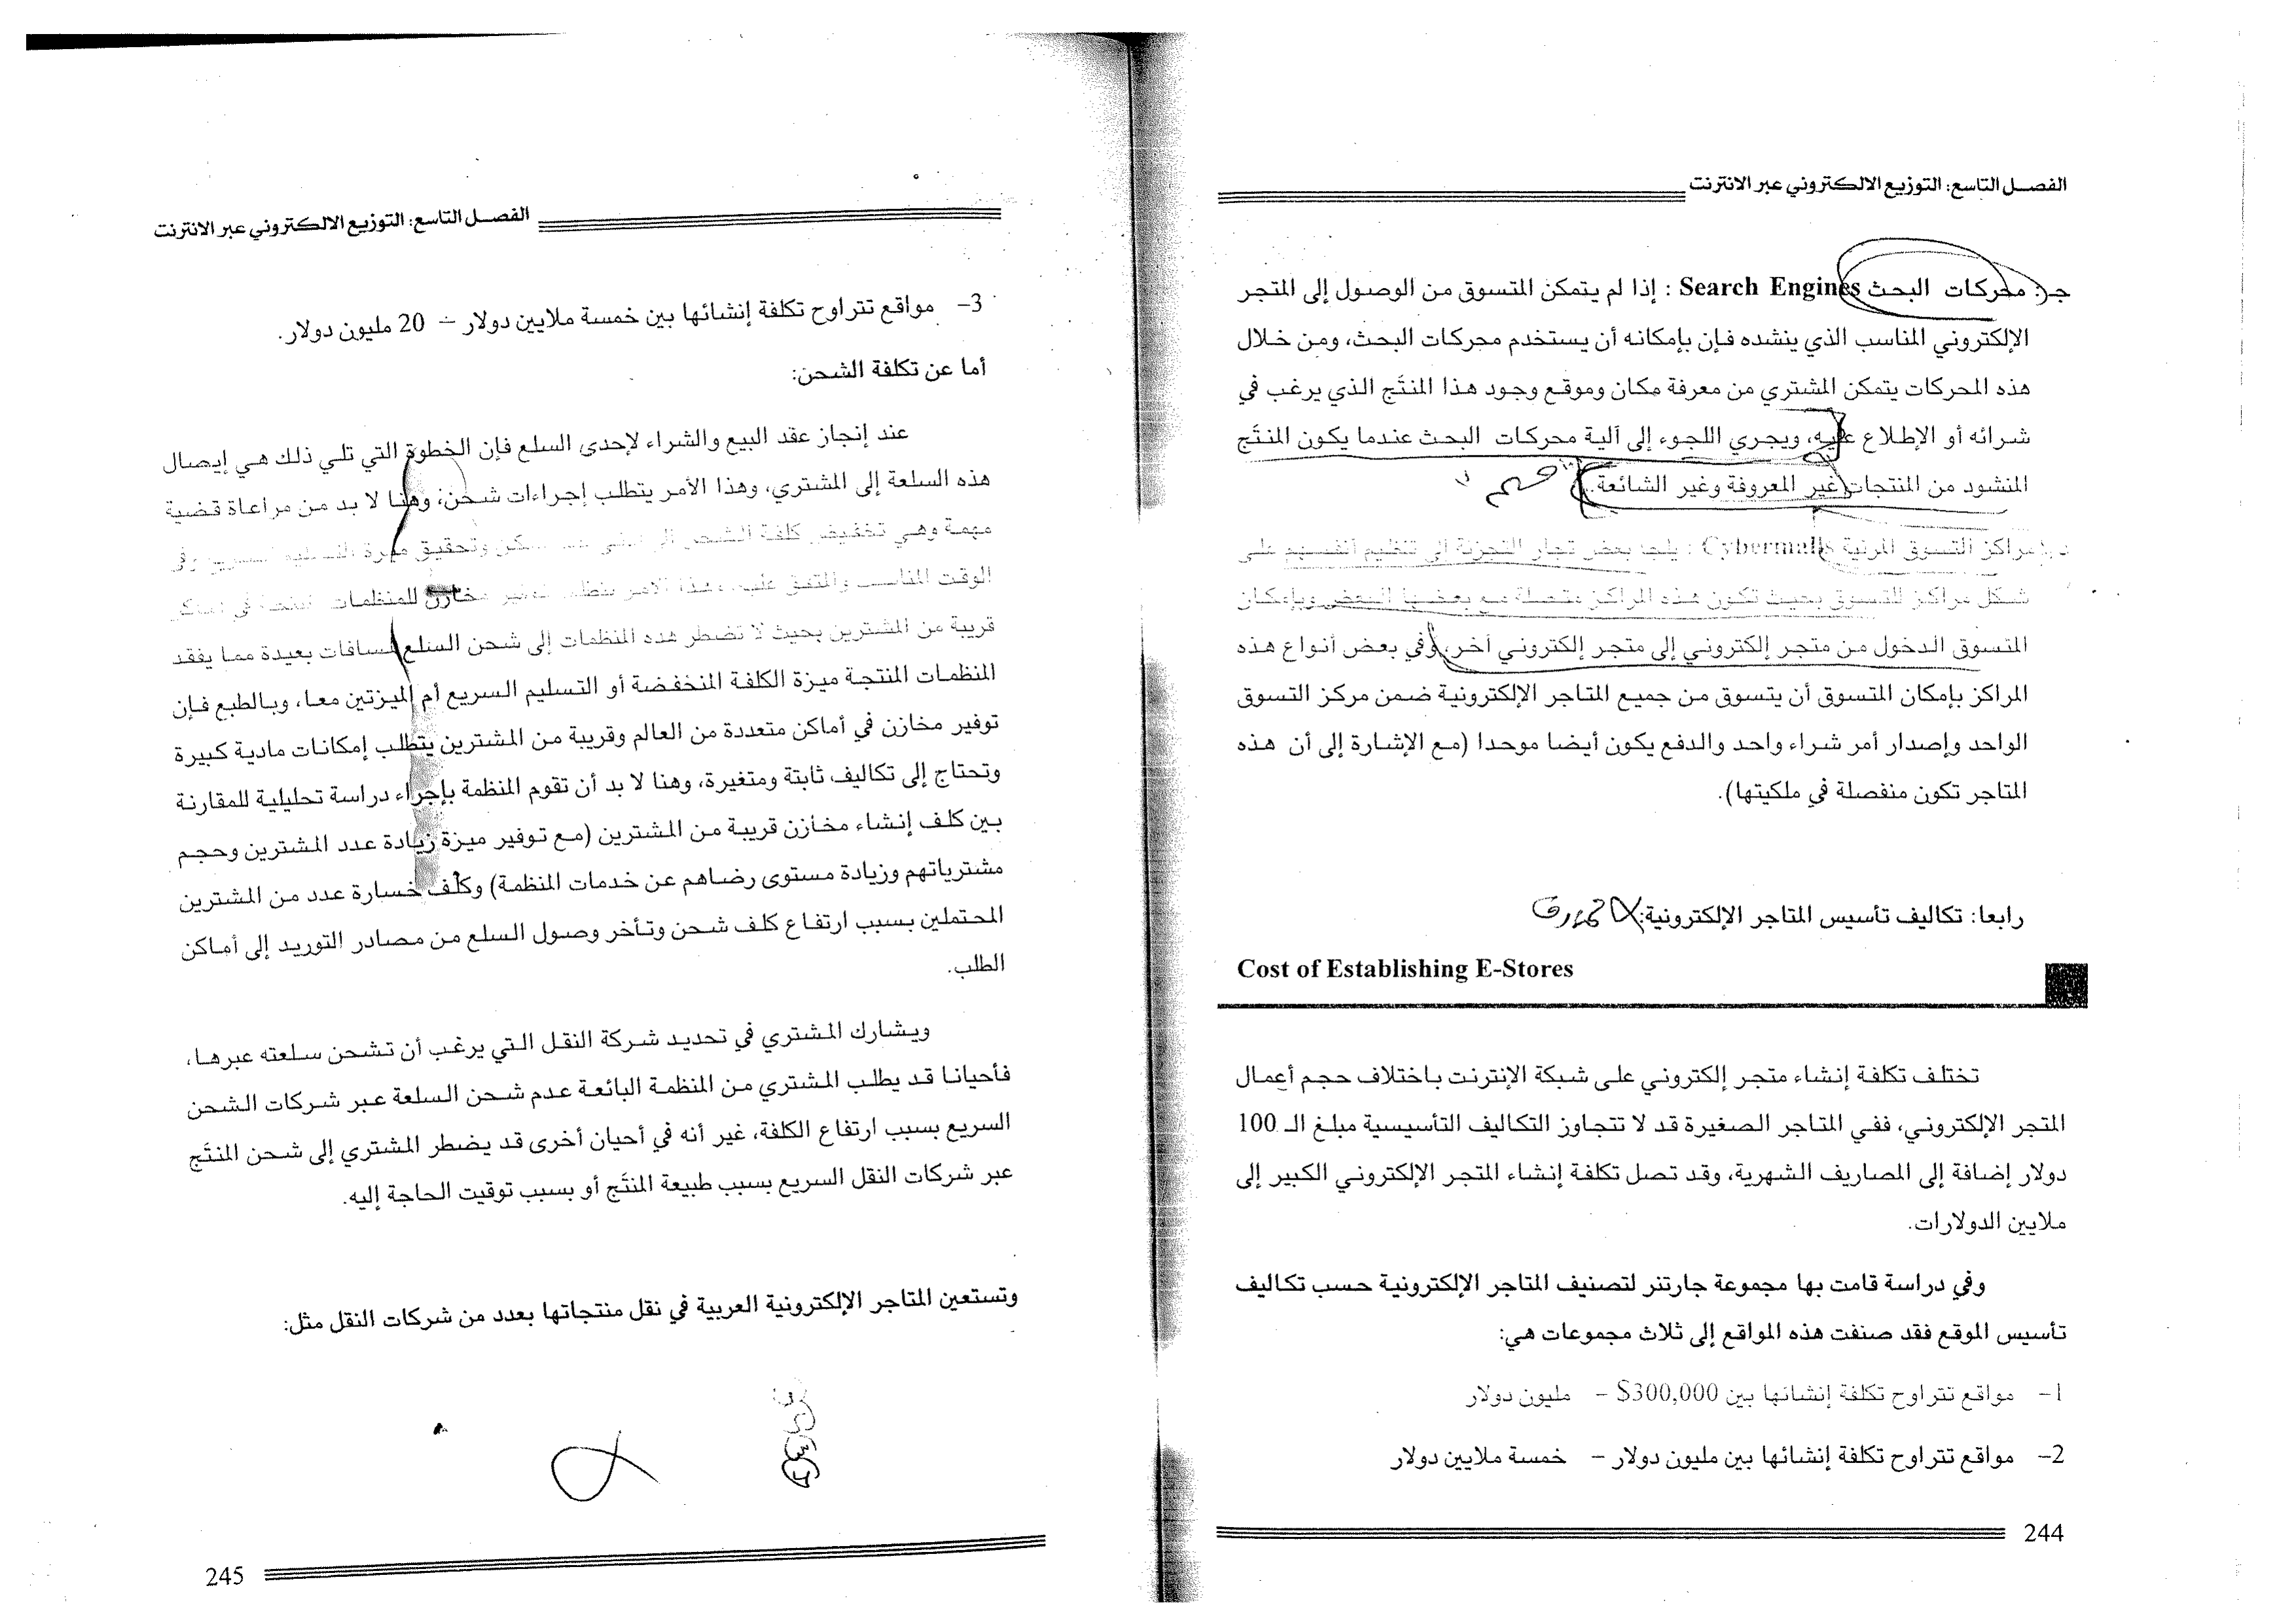 الفصل التاسع: التوزيع الالكتروني عبر الانترنت
جـ: محركات البحث Search Engines : إذا لم يتمكن المتسوق من الوصول إلى المتجر
الإلكتروني المناسب الذي ينشده فإن بإمكانه أن يستخدم محركات البحث، ومن خلال
هذه المحركات يتمكن المشتري من معرفة مكان وموقع وجود هذا المنتَج الذي يرغب في
شرائه أو الإطلاع عليه، ويجري اللجوء إلى آلية محركات البحث عندما يكون المنتَج
المنشود من المنتجات غير المعروفة وغير الشائعة.
د: مراكز التسوق المرئية Cybermalls : يلجأ بعض تجار التجزئة إلى تنظيم أنفسهم على
شكل مراكز للتسوق بحيث تكون هذه المراكز متصلة مع بعضها البعض وبإمكان
المتسوق الدخول من متجر إلكتروني إلى متجر إلكتروني آخر، وفي بعض أنواع هذه
المراكز بإمكان المتسوق أن يتسوق من جميع المتاجر الإلكترونية ضمن مركز التسوق
الواحد وإصدار أمر شراء واحد والدفع يكون أيضا موحدا (مع الإشارة إلى أن هذه
المتاجر تكون منفصلة في ملكيتها).
رابعا: تكاليف تأسيس المتاجر الإلكترونية:
Cost of Establishing E-Stores
تختلف تكلفة إنشاء متجر إلكتروني على شبكة الإنترنت باختلاف حجم أعمال
المتجر الإلكتروني، ففي المتاجر الصغيرة قد لا تتجاوز التكاليف التأسيسية مبلغ الـ 100
دولار إضافة إلى المصاريف الشهرية، وقد تصل تكلفة إنشاء المتجر الإلكتروني الكبير إلى
ملايين الدولارات.
وفي دراسة قامت بها مجموعة جارتنر لتصنيف المتاجر الإلكترونية حسب تكاليف
تأسيس الموقع فقد صنفت هذه المواقع إلى ثلاث مجموعات هي:
1- مواقع تتراوح تكلفة إنشائها بين 300,000$ - مليون دولار
2- مواقع تتراوح تكلفة إنشائها بين مليون دولار - خمسة ملايين دولار
244
الفصل التاسع: التوزيع الالكتروني عبر الانترنت
3- مواقع تتراوح تكلفة إنشائها بين خمسة ملايين دولار - 20 مليون دولار.
أما عن تكلفة الشحن:
عند إنجاز عقد البيع والشراء لإحدى السلع فإن الخطوة التي تلي ذلك هي إيصال
هذه السلعة إلى المشتري، وهذا الأمر يتطلب إجراءات شحن، وهنا لا بد من مراعاة قضية
مهمة وهي تخفيض كلفة الشحن إلى وتحقيق ميزة التسليم السريع وفي
الوقت المناسب والمتفق عليه، وهذا الأمر يتطلب توفير مخازن للمنظمات المنتجة في أماكن
قريبة من المشترين بحيث لا تضطر هذه المنظمات إلى شحن السلع لمسافات بعيدة مما يفقد
المنظمات المنتجة ميزة الكلفة المنخفضة أو التسليم السريع أم الميزتين معا، وبالطبع فإن
توفير مخازن في أماكن متعددة من العالم وقريبة من المشترين يتطلب إمكانات مادية كبيرة
وتحتاج إلى تكاليف ثابتة ومتغيرة، وهنا لا بد أن تقوم المنظمة بإجراء دراسة تحليلية للمقارنة
بين كلف إنشاء مخازن قريبة من المشترين (مع توفير ميزة زيادة عدد المشترين وحجم
مشترياتهم وزيادة مستوى رضاهم عن خدمات المنظمة) وكلف خسارة عدد من المشترين
المحتملين بسبب ارتفاع كلف شحن وتأخر وصول السلع من مصادر التوريد إلى أماكن
الطلب.
ويشارك المشتري في تحديد شركة النقل التي يرغب أن تشحن سلعته عبرها،
فأحيانا قد يطلب المشتري من المنظمة البائعة عدم شحن السلعة عبر شركات الشحن
السريع بسبب ارتفاع الكلفة، غير أنه في أحيان أخرى قد يضطر المشتري إلى شحن المنتَج
عبر شركات النقل السريع بسبب طبيعة المنتَج أو بسبب توقيت الحاجة إليه.
وتستعين المتاجر الإلكترونية العربية في نقل منتجاتها بعدد من شركات النقل مثل:
245